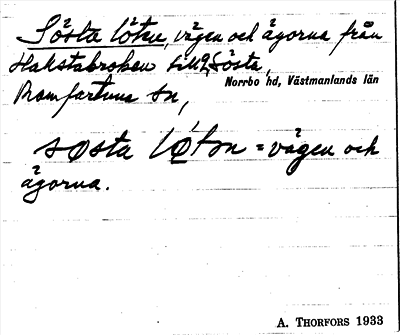 Sösta löten, vägen och ägorna från
Hakstabroken till Sösta,
Norrbo hd, Västmanlands län
Romfartuna sn,
søsta løtn = vägen och
ägorna.
A. THORFORS 1933